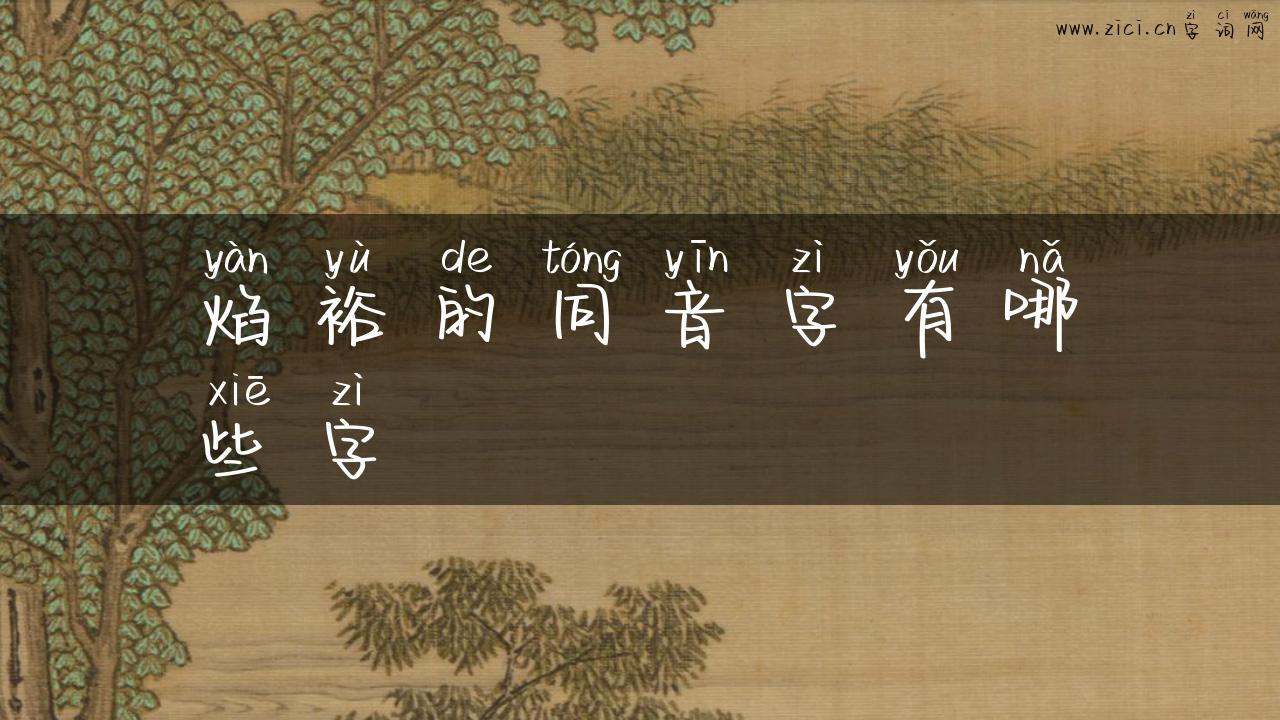 zì cí wǎng
www.zici.cn字词网
yàn yù de tóng yīn zì yǒu nǎ
焰裕的同音字有哪
xiē zì
些字